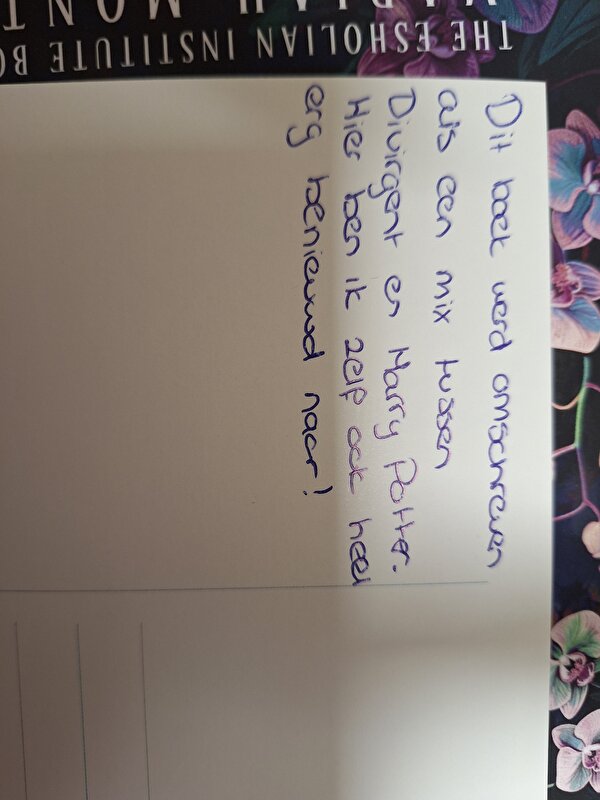 MARIAH MONT
THE ESHOLIAN INSTITUTE BO
Dit boek werd omschreven
als een mix tussen
Divirgent en Harry Potter.
Hier ben ik zelf ook heel
erg benieuwd naar!